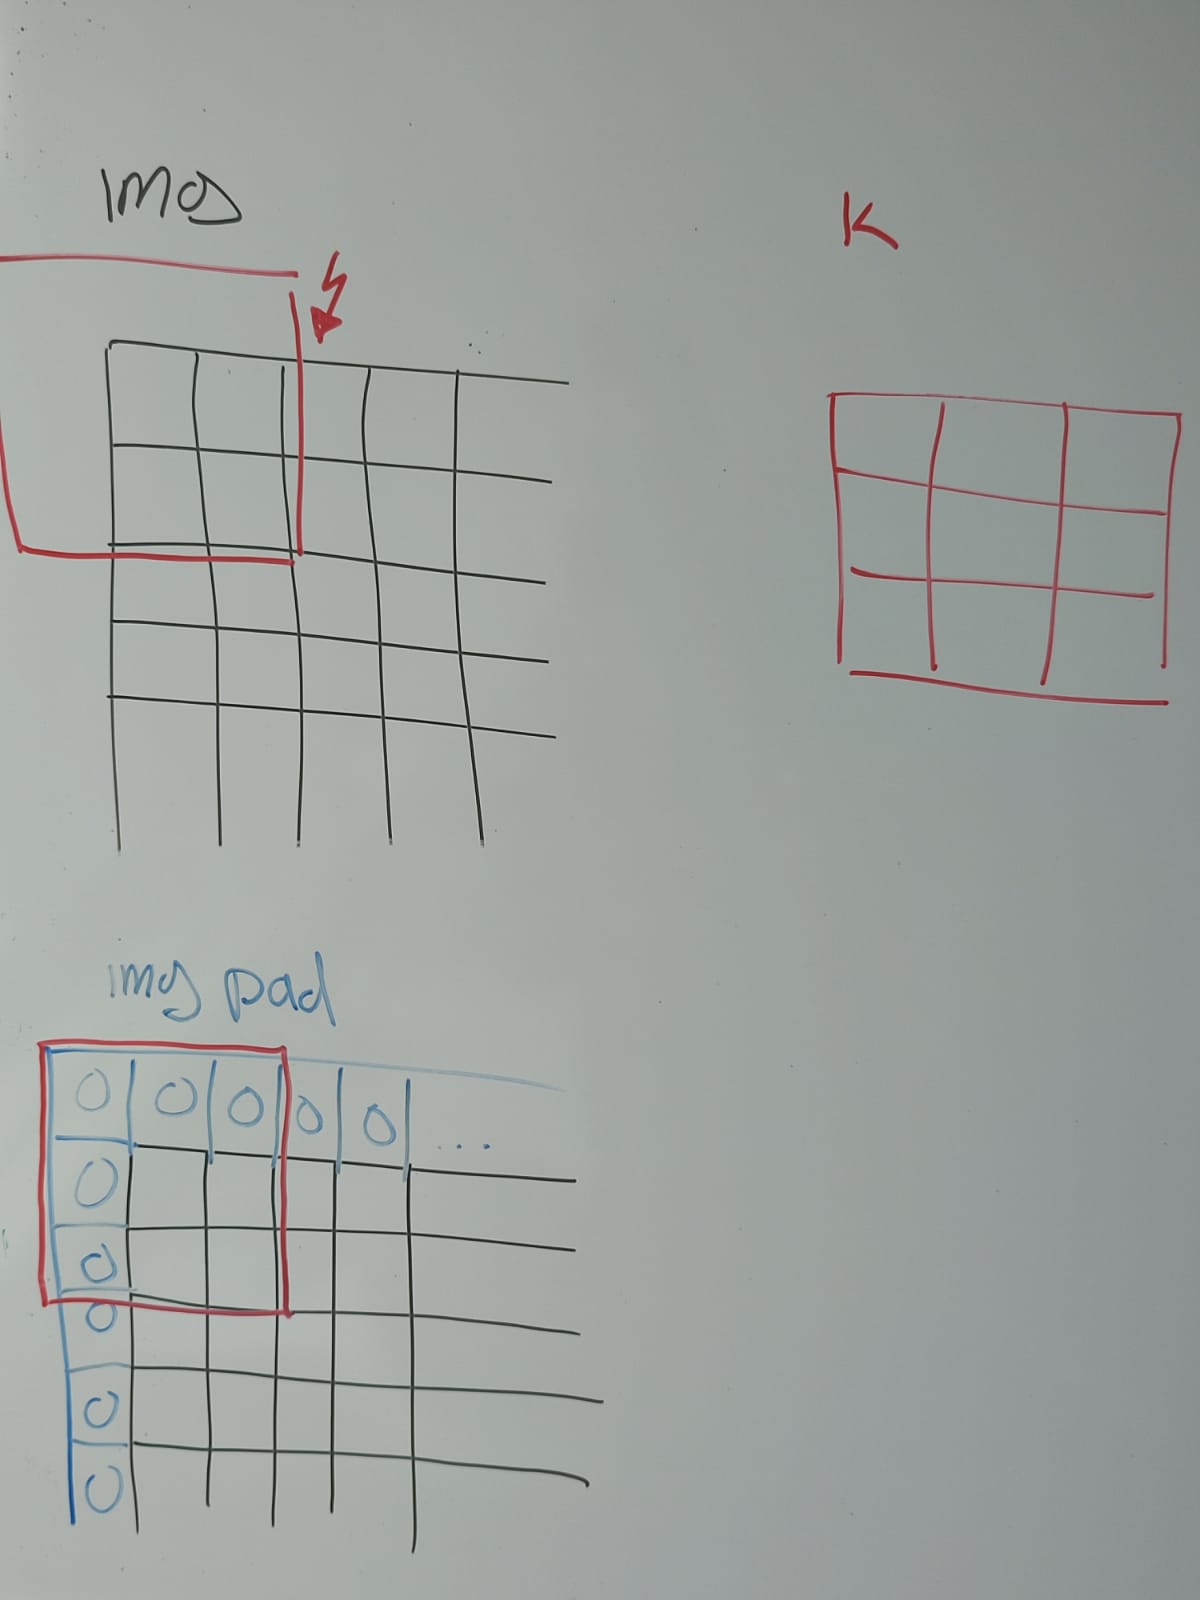 img
K
img pad
0 0 0 0 0 ...
0
0
0
0
0